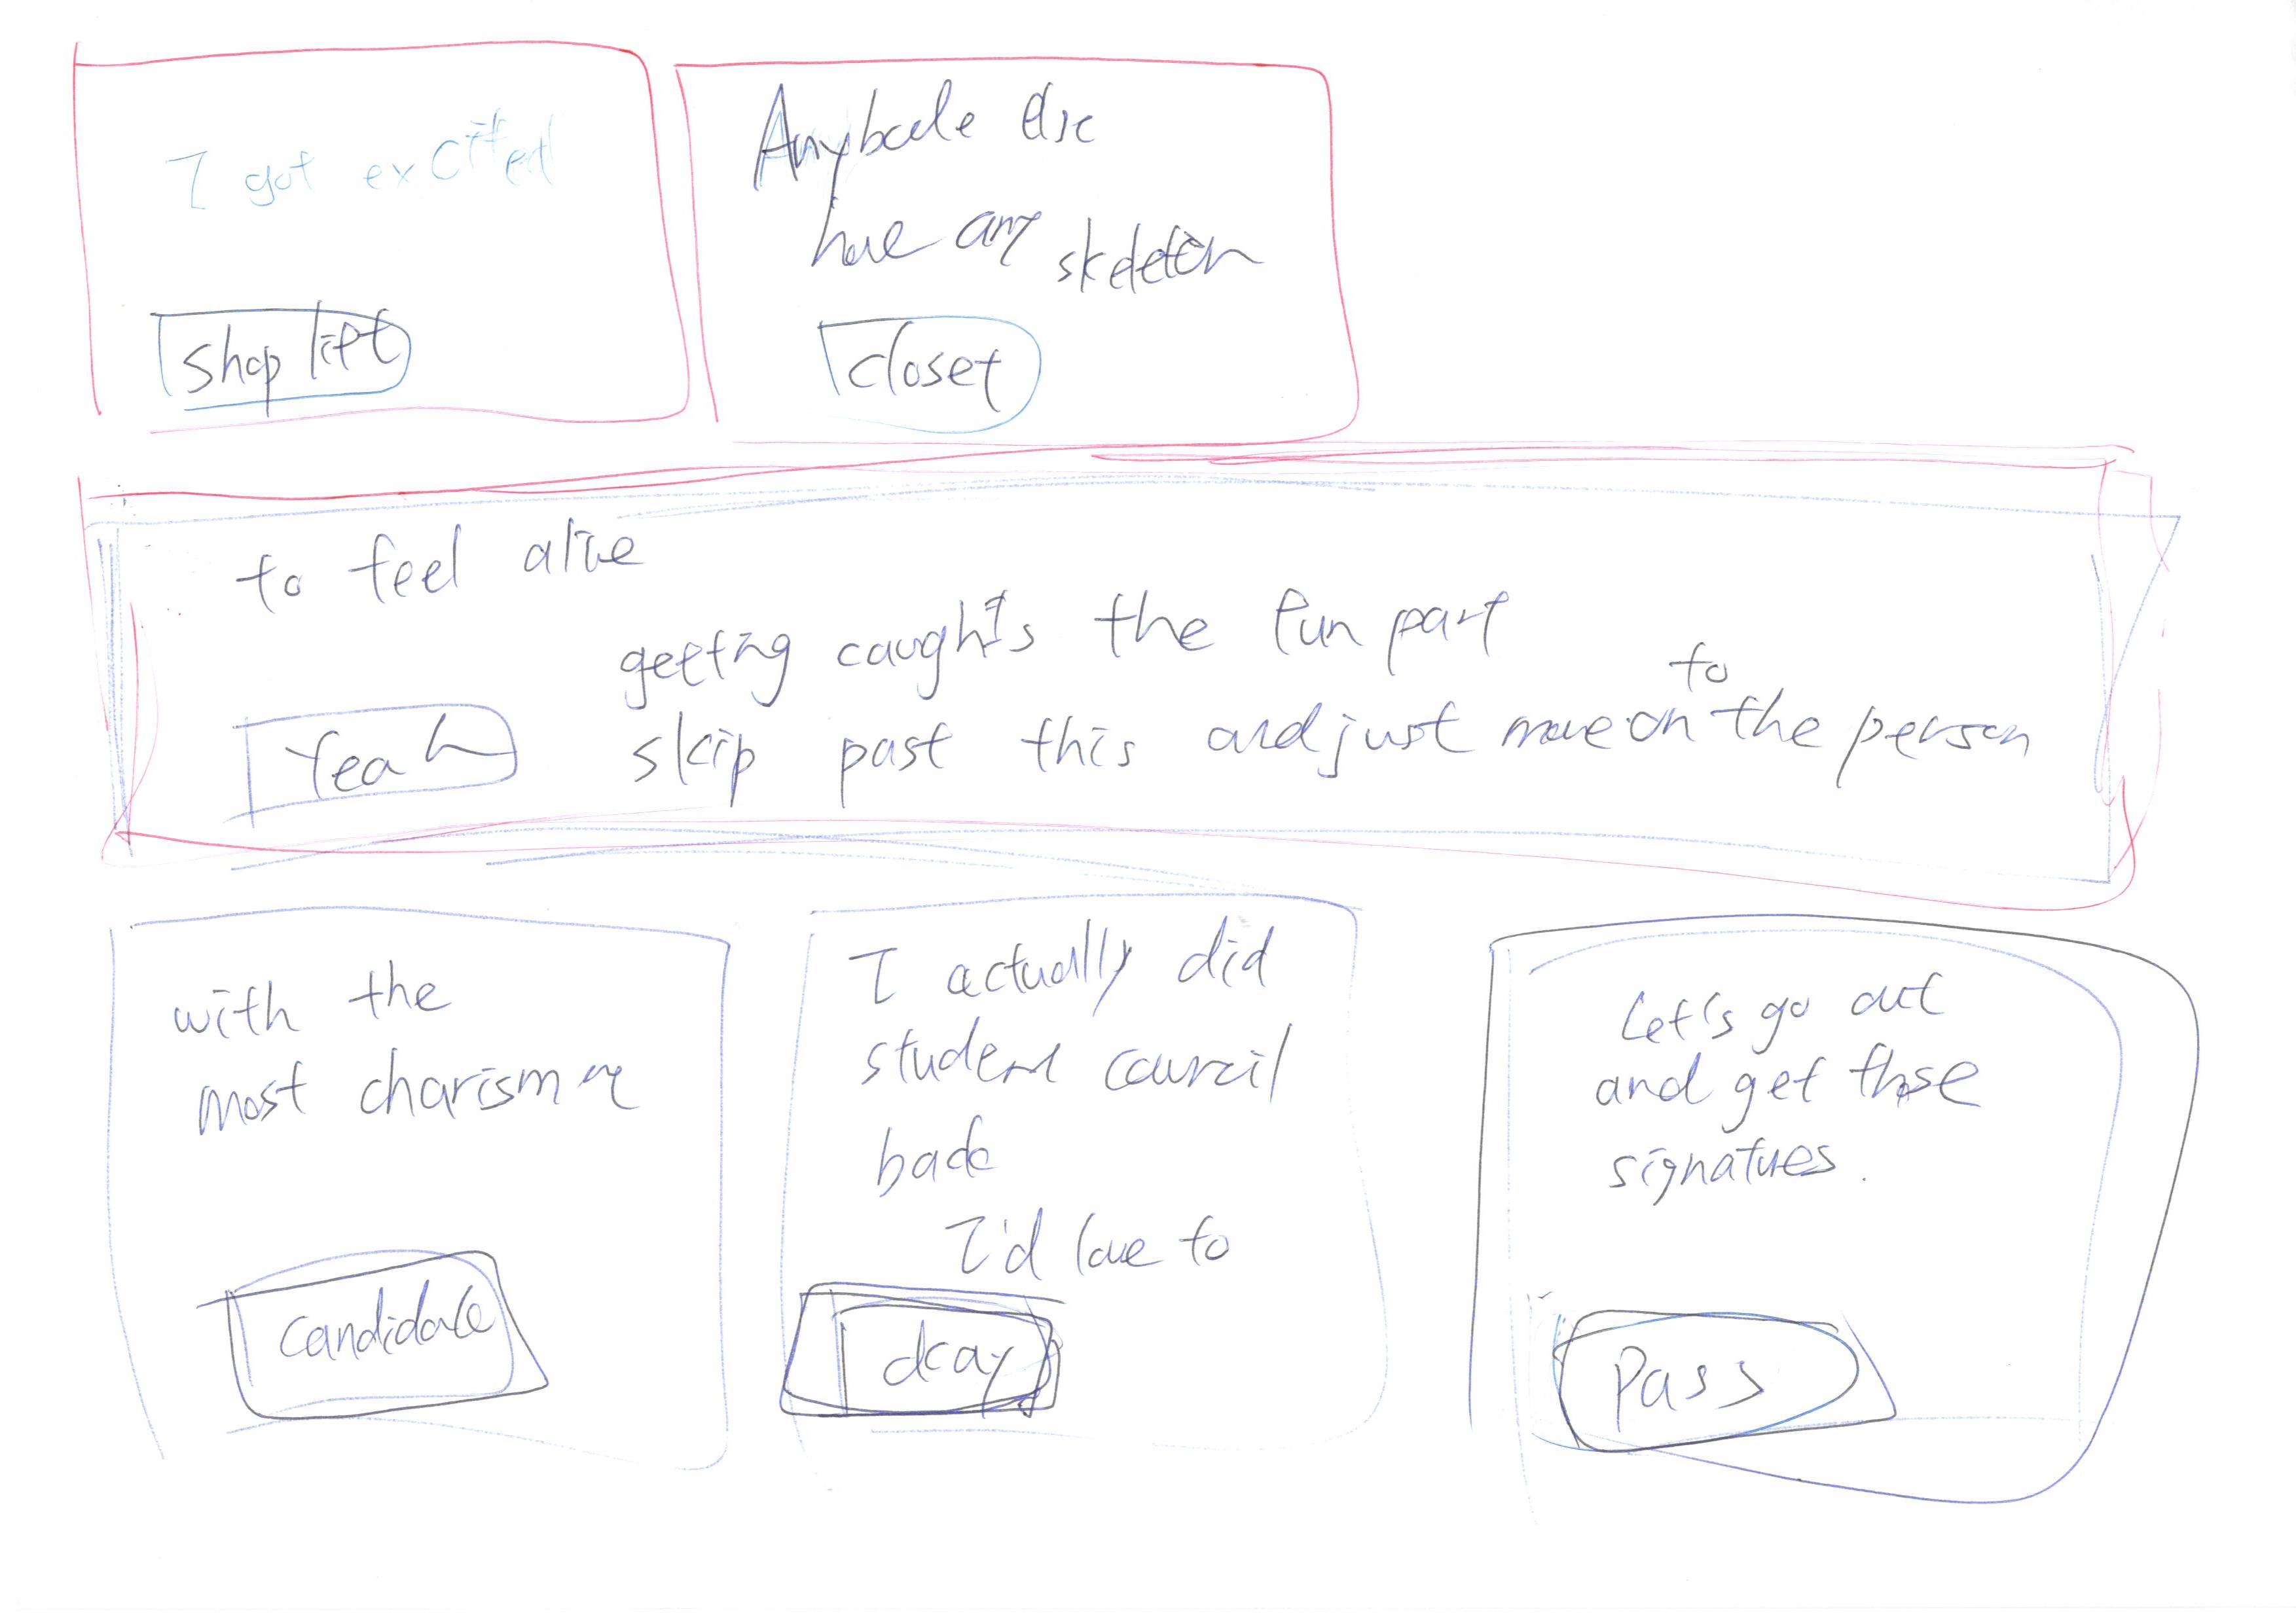 I got excited
shop lift
Anybode else
have any skeleton
closet
to feel alive
getting caught is the fun part
Yeah
skip past this and just move on to the person
with the
most charisma
candidate
I actually did
student council
back
I'd love to
okay
Let's go out
and get those
signatures.
Pass